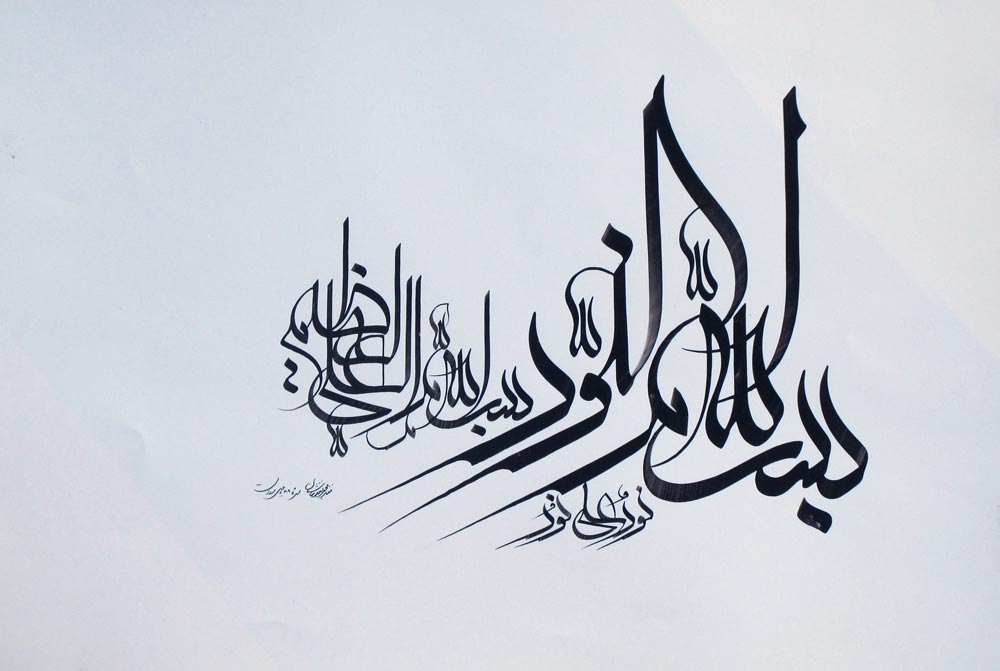 بسم الله النور
بسم الله العلی العظیم
نور علی نور